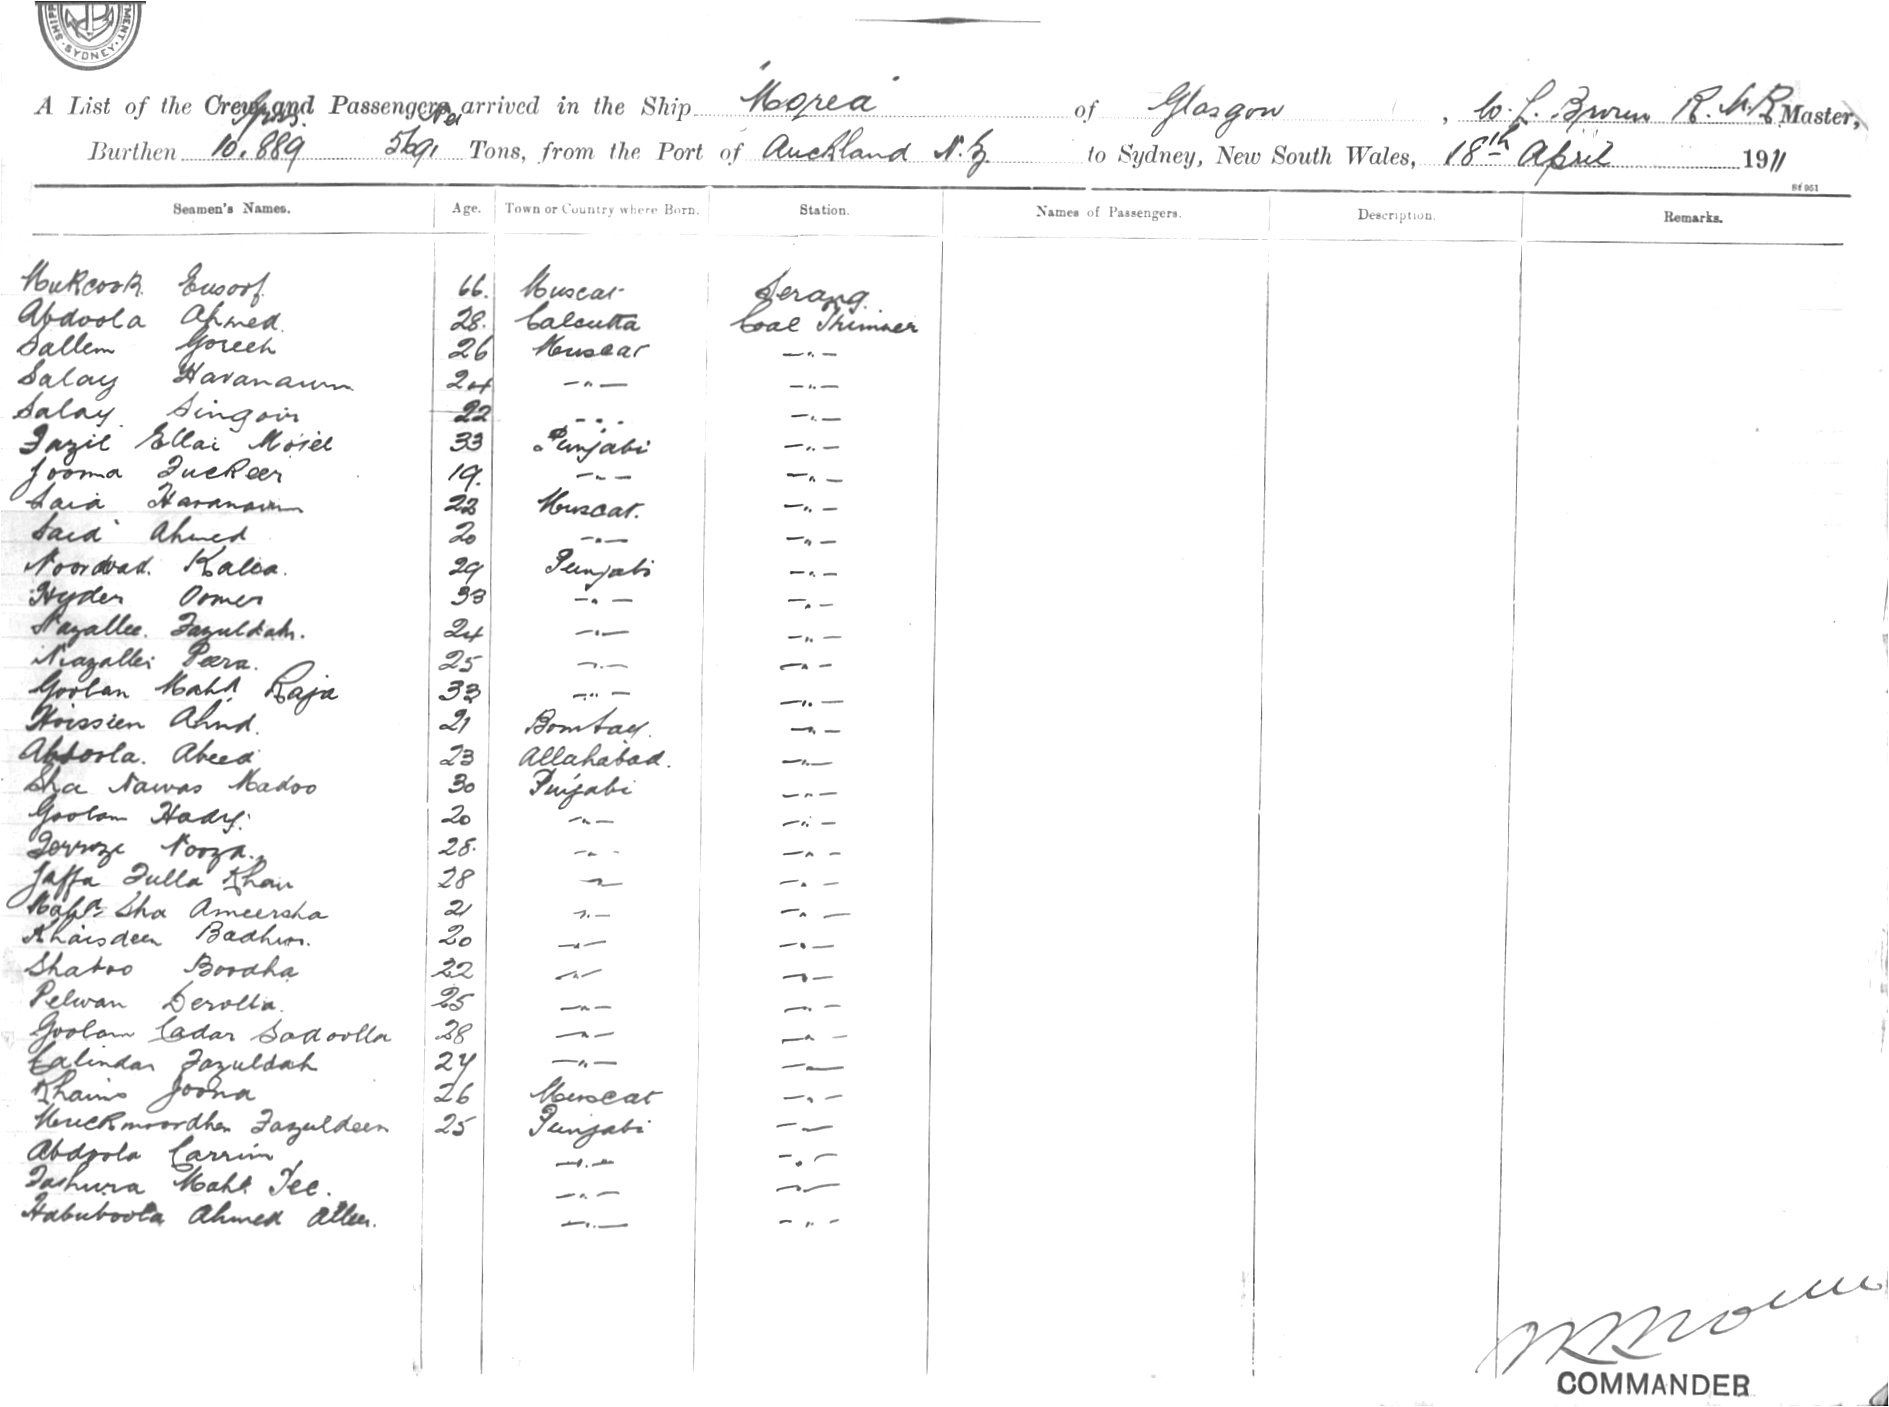 SYDNEY
A List of the Crew and Passengers arrived in the Ship "Morea" of Glasgow, W. L. Brown R.N.R. Master,
Gross. Net
Burthen 10,889 5691 Tons, from the Port of Auckland N.Z. to Sydney, New South Wales, 18th April 1911
Sf 951
Seamen's Names. Age. Town or Country where Born. Station. Names of Passengers. Description. Remarks.
Eusoof. 66. Muscat Serang.
Abdoola Ahmed. 28. Calcutta Coal Trimmer
Sallem Goreeh 26 Muscat —"—
Salay Havanaum 24 —"— —"—
Salay Singoir 22 —"— —"—
Fazil Ellai 33 Punjabi —"—
Jooma Fuckeer 19. —"— —"—
Said Havanaum 22 Muscat. —"—
Said Ahmed 20 —"— —"—
Kalla. 29 Punjabi —"—
Hyder Oomer 33 —"— —"—
Nazallee. Fazuldah. 24 —"— —"—
Niazallei Peera. 25 —"— —"—
Goolan Mahd Raja 33 —"— —"—
Hoissien Ahmd. 21 Bombay. —"—
Abdoola. Abeed 23 Allahabad. —"—
Sha Nawas Madoo 30 Punjabi —"—
Goolam Hady. 20 —"— —"—
Nooza. 25. —"— —"—
Jaffa Fulla Khan 28 —"— —"—
Mahd Sha Ameersha 21 —"— —"—
Khaisdeen 20 —"— —"—
Shaboo Boodha 22 —"— —"—
Pelwan Derolla. 25 —"— —"—
Goolam Cadar Sadoolla 28 —"— —"—
Calindar Fazuldah 24 —"— —"—
Joona 26 Muscat —"—
Muckmoordhen Fazuldeen 25 Punjabi —"—
Abdoola Carrim —"— —"—
Fashura Mahd —"— —"—
Habuboola Ahmed —"— —"—
COMMANDER